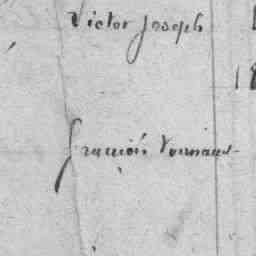 Victor Joseph
18
françois